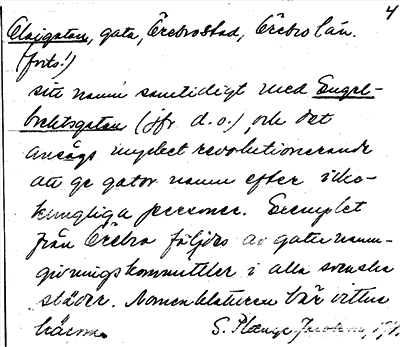 4
Olaigatan, gata, Örebro stad, Örebro län.
(forts.)
sitt namn samtidigt med Engel-
brektsgatan (jfr d.o.), och det
ansågs mycket revolutionerande
att ge gator namn efter icke-
kungliga personer. Exemplet
från Örebro följdes av gatunamn-
givningskommittéer i alla svenska
städer. Nomenklaturen bär vittne
härom.
S.